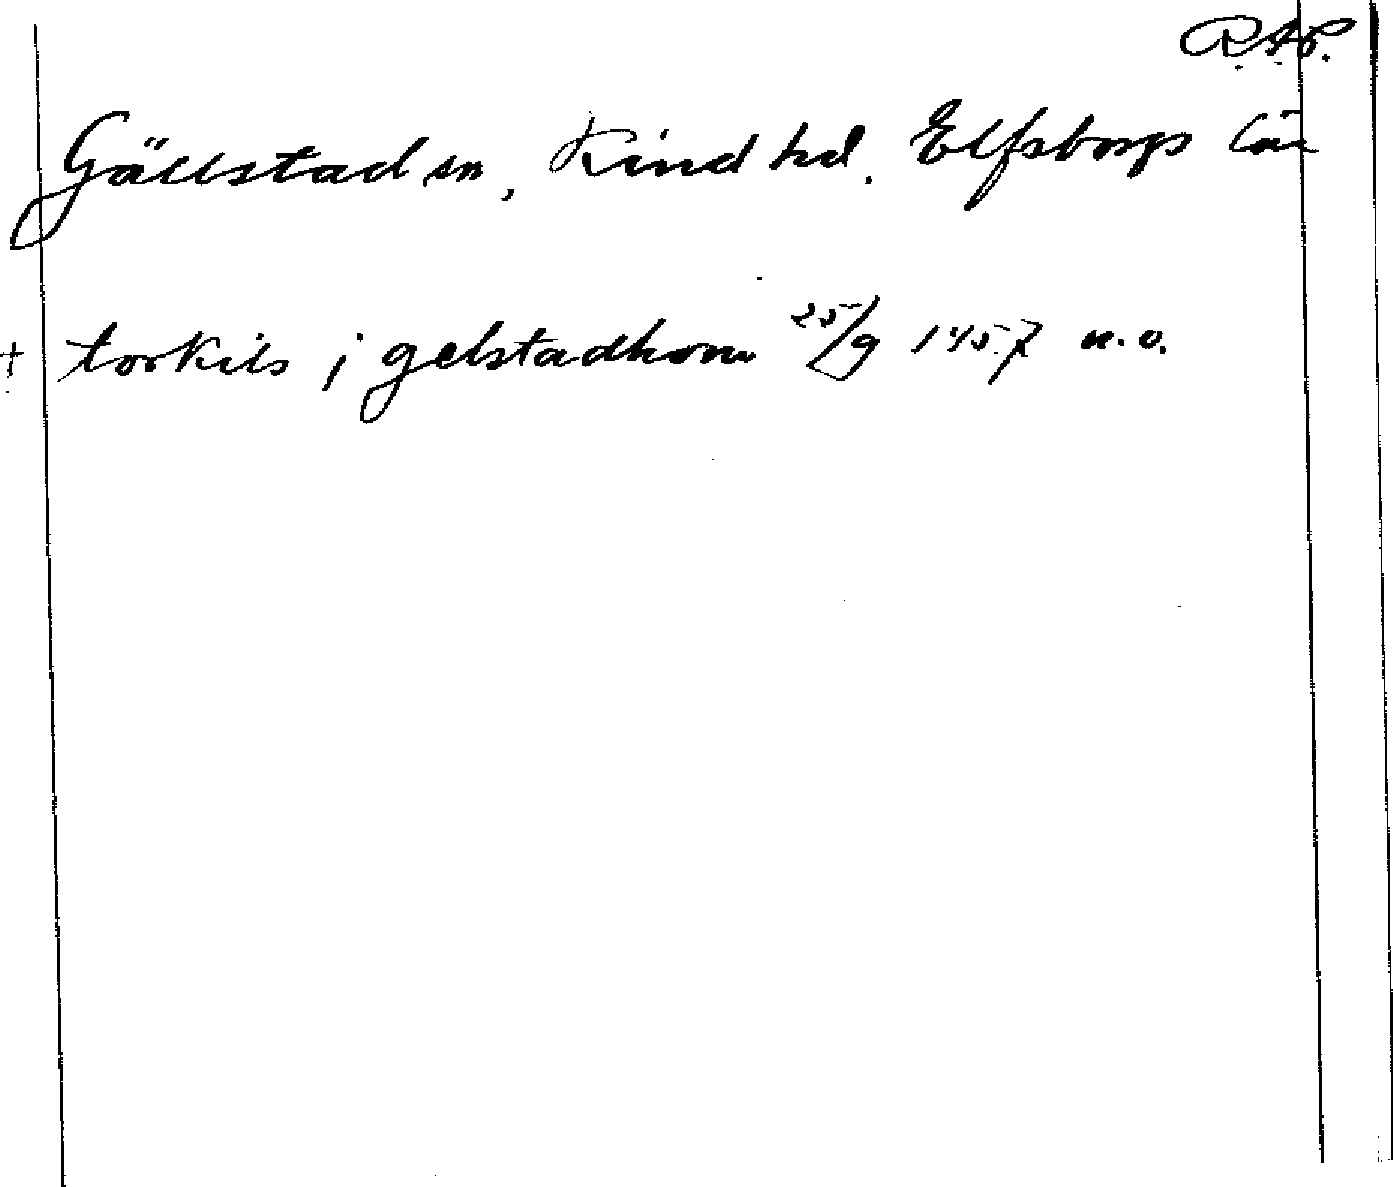 R.A.P.
Gällstad sn, Kind hd. Elfsborgs län
+ torkils j gelstadhom 25/9 1457 n.o.